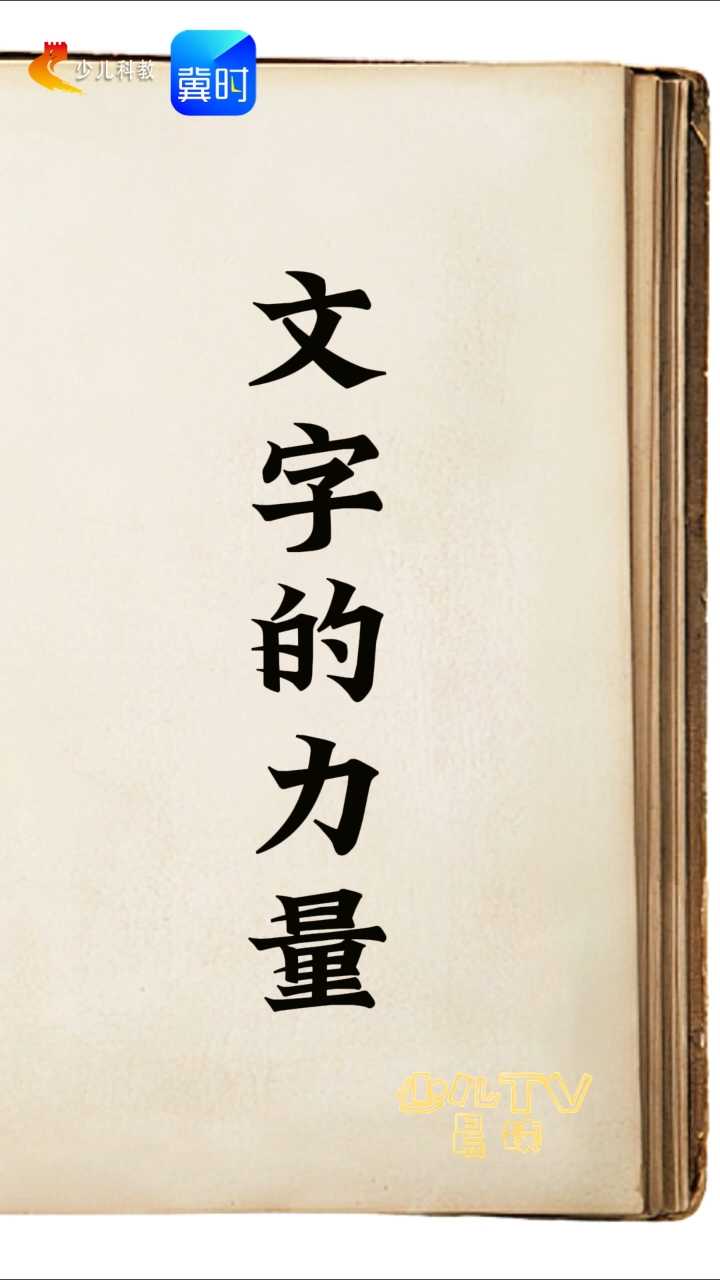 少儿科教
冀时
文字的力量
少儿TV